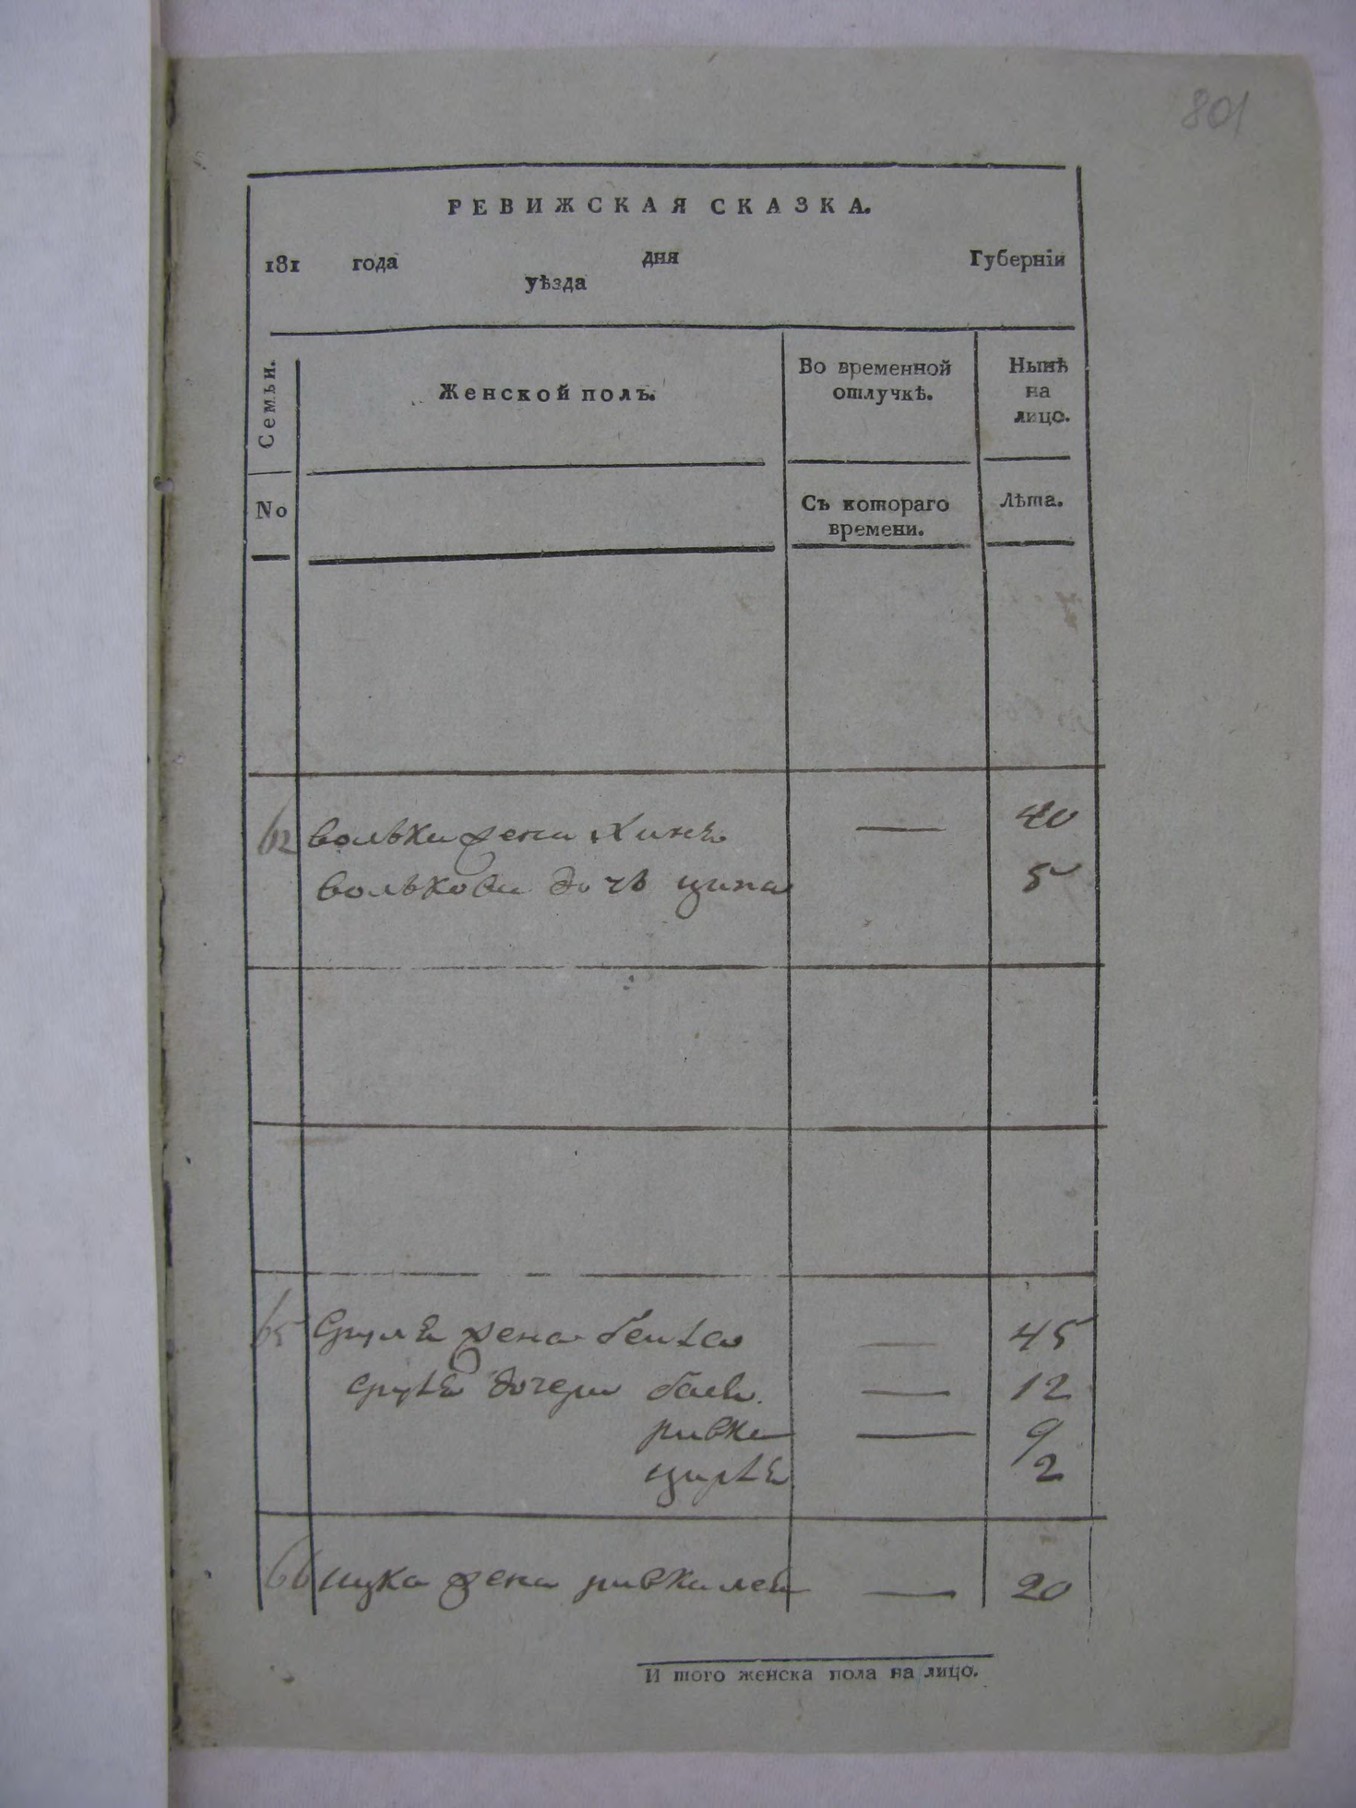 801
РЕВИЖСКАЯ СКАЗКА.
181 года дня Губерніи
уѣзда
Семьи.
Женской полъ.
Во временной
отлучкѣ.
Нынѣ
на
лицо.
No
Съ котораго
времени.
Лѣта.
62 волька жена Хинѣ — 40
волькови дочь ципа 5
65 Сруля жена — 45
дочери — 12
ривка — 9
2
66 ицка жена ривка лея — 20
И того женска пола на лицо.